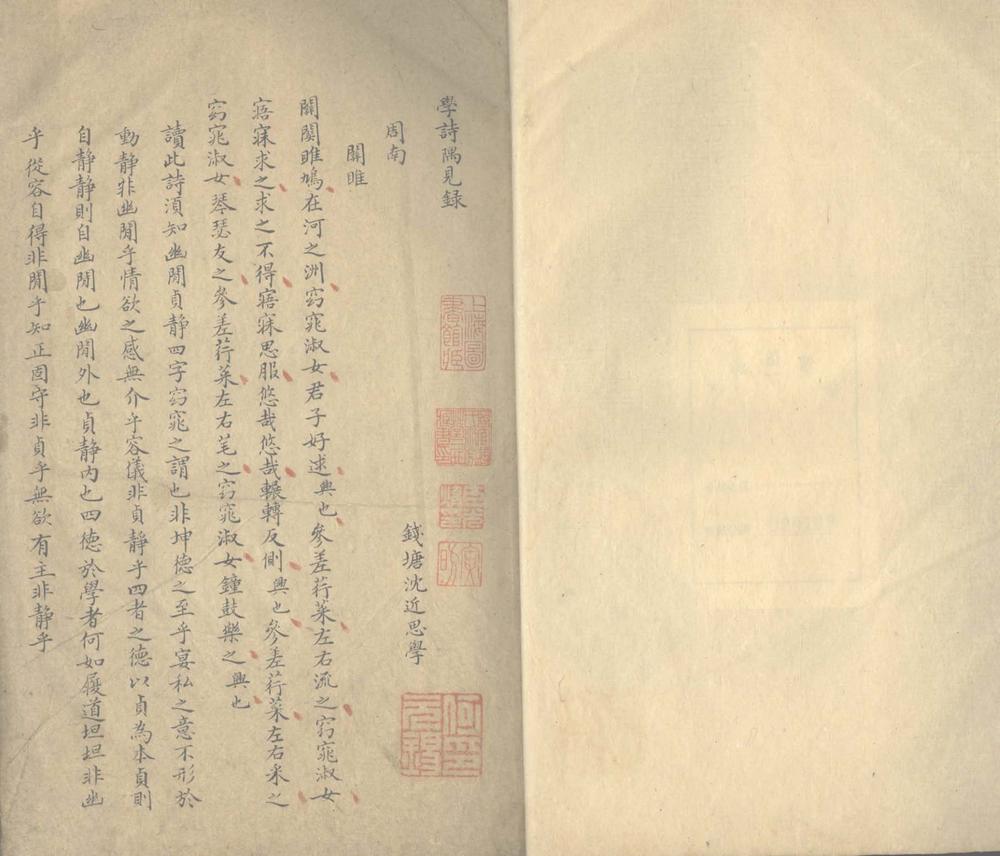 學詩隅見録
錢塘沈近思學
周南
關雎
關關雎鳩在河之洲窈窕淑女君子好逑興也參差荇菜左右流之窈窕淑女
寤寐求之求之不得寤寐思服悠哉悠哉輾轉反側興也參差荇菜左右采之
窈窕淑女琴瑟友之參差荇菜左右芼之窈窕淑女鐘鼓樂之興也
讀此詩湏知幽閒貞静四字窈窕之謂也非坤德之至乎宴私之意不形於
動静非幽閒乎情欲之感無介乎容儀非貞静乎四者之德以貞為本貞則
自静静則自幽閒也幽閒外也貞静内也四德於學者何如履道坦坦非幽
乎從容自得非閒乎知正固守非貞乎無欲有主非静乎
上海圖書館藏
何元錫印